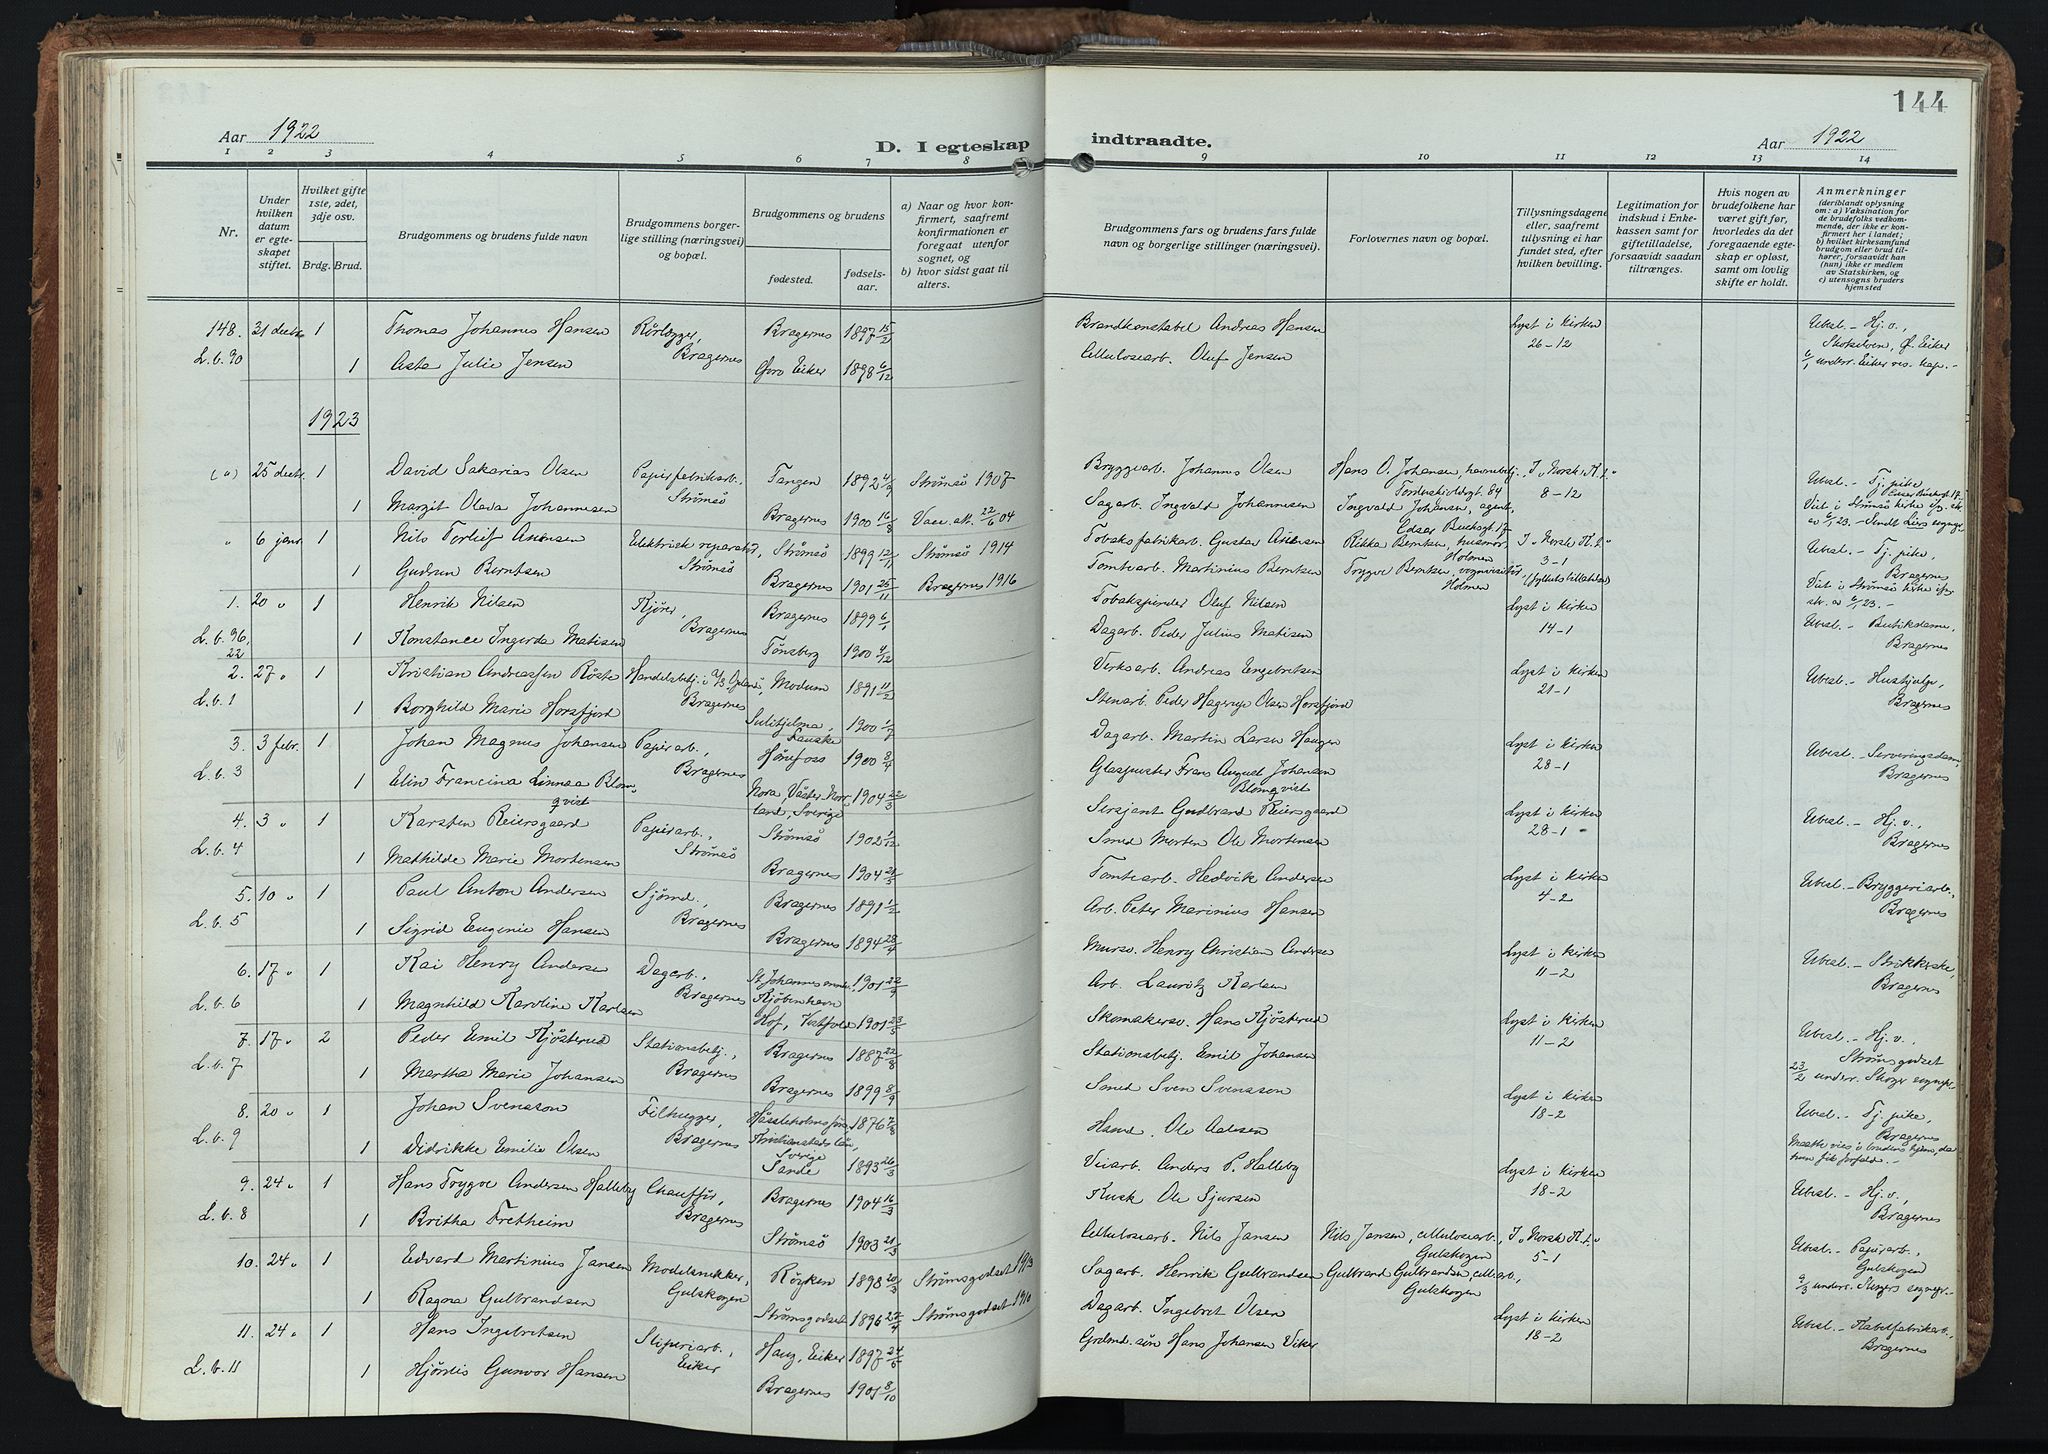 144
Aar 1922
D. I egteskap indtraadte.
Aar 1922
1 2 3 4 5 6 7 8 9 10 11 12 13 14
Nr.
Under hvilken datum er egteskapet stiftet.
Hvilket gifte 1ste, 2det, 3dje osv.
Brdg. Brud.
Brudgommens og brudens fulde navn
Brudgommens borgerlige stilling (næringsvei) og bopæl.
Brudgommens og brudens
fødested.
fødselsaar.
a) Naar og hvor konfirmert, saafremt konfirmationen er foregaat utenfor sognet, og
b) hvor sidst gaat til alters.
Brudgommens fars og brudens fars fulde navn og borgerlige stillinger (næringsvei).
Forlovernes navn og bopæl.
Tillysningsdagene eller, saafremt tillysning ei har fundet sted, efter hvilken bevilling.
Legitimation for indskud i Enkekassen samt for giftetilladelse, forsaavidt saadan tiltrænges.
Hvis nogen av brudefolkene har været gift før, hvorledes da det foregaaende egteskap er opløst, samt om lovlig skifte er holdt.
Anmerkninger
(deriblandt oplysning om: a) Vaksination for de brudefolks vedkommende, der ikke er konfirmert her i landet; b) hvilket kirkesamfund brudgom eller brud tilhører, forsaavidt han (hun) ikke er medlem av Statskirken, og c) utensogns bruders hjemsted
148. 31 decbr 1 Thomas Johannes Hansen Rörlægger, Bragernes Bragernes 1897 15/2 Brandkonstabel Andreas Hansen Lyst i kirken 26-12 Ubesl. - Hj. v.,
L.b. 90 1 Asta Julie Jensen Øvre Eiker 1898 6/12 Cellulosearb. Oluf Jensen Skotselven, Ø. Eiker
1923
(") 25 decbr. 1 David Sakarias Olsen Papirfabrikarb. Strømsø Tangen 1892 4/9 Strømsø 1907 Bryggearb. Johannes Olsen Hans O. Johansen, havnebetj. Tordenskioldsgt. 84 I "Norsk K.t." 8-12 Ubesl. - Tj. pike,
1 Margit Olava Johannesen Bragernes 1900 16/8 Vacc. att. 22/6 04 Sagarb. Ingvald Johannesen Ingvald Johansen, agent, Viet i Strømsø kirke
" 6 janr. 1 Nils Torleif Asensen Elektrisk reparatør, Strømsø Strømsö 1899 12/11 Strømsø 1914 Tobaksfabrikarb. Gustav Asensen Rikka Berntsen, husmor, Holmen I "Norsk K.t." 3-1 Ubesl. - Tj. pike, Bragernes
1 Gudrun Berntsen Bragernes 1901 25/11 Bragernes 1916 Tomtearb. Martinius Berntsen Trygve Berntsen, vognvisitör, Holmen Viet i Strømsø kirke
1. 20 " 1 Henrik Nilsen Kjører, Bragernes Bragernes 1899 6/1 Tobakspinder Oluf Nilsen Lyst i kirken 14-1
L.b. 96, 22 1 Konstance Ingerda Matisen Tønsberg 1900 4/12 Dagarb. Peder Julius Matisen Ubesl. - Butiksdame, Bragernes
2. 27 " 1 Kristian Andreassen Röste Handelsbetj. Bragernes Modum 1891 11/2 Verksarb. Andreas Engebretsen Lyst i kirken 21-1 Ubesl. - Hushjelp, Bragernes
L.b. 1 1 Borghild Marie Horsfjord Sulitjelma, Fauske 1900 1/7 Stenarb. Peder Hagerup Olsen Horsfjord
3. 3 febr. 1 Johan Magnus Johansen Papirarb., Bragernes Hønefoss 1900 9/4 Dagarb. Martin Larsen Haugen Lyst i kirken 28-1 Ubesl. - Serveringsdam, Bragernes
L.b. 3 1 Elin Francina Linnea Blomqvist Nora, Väster-Norrland, Sverige 1904 22/3 Glaspuster Frans August Johansen Blomqvist
4. 3 " 1 Karsten Reiersgaard Papirarb., Strømsø Strømsø 1902 1/12 Sersjant Gudbrand Reiersgaard Lyst i kirken 28-1 Ubesl. - Hj. v., Bragernes
L.b. 4 1 Mathilde Marie Mortensen Bragernes 1904 21/5 Smed Morten Ole Mortensen
5. 10 " 1 Paul Anton Andersen Sjømd., Bragernes Bragernes 1891 1/2 Tomtearb. Hedvik Andersen Lyst i kirken 4-2 Ubesl. - Bryggeriarb., Bragernes
L.b. 5 1 Sigrid Eugenie Hansen Bragernes 1894 28/4 Arb. Peter Marinius Hansen
6. 17 " 1 Kai Henry Andersen Dagarb., Bragernes St. Johannes Kjöbenhavn 1901 22/9 Mursv. Henry Christian Andersen Lyst i kirken 11-2 Ubesl. - Strikkerske, Bragernes
L.b. 6 1 Magnhild Karoline Karlsen Hof, Vestfold 1901 23/5 Arb. Lauritz Karlsen
7. 17 " 2 Peder Emil Kjösterud Stationsbetj., Bragernes Bragernes 1887 22/8 Skomakersv. Hans Kjösterud Lyst i kirken 11-2 Ubesl. - Hj. v., Strømsgodset
L.b. 7 1 Martha Marie Johansen Bragernes 1899 8/9 Stationsbetj. Emil Johansen 23/2 underr. Skoger sognepr.
8. 20 " 1 Johan Svensson Filhugger, Bragernes Kristianstads län, Sverige 1876 7/8 Smed Sven Svensson Lyst i kirken 18-2 Ubesl. - Tj. pike, Bragernes
L.b. 9 1 Didrikke Emilie Olsen Sande 1893 26/3 Hamd. Ole Adesen Maatte vies i brudens hjem, da hun fik forfald.
9. 24 " 1 Hans Trygve Andersen Halleby Chauffør, Bragernes Bragernes 1904 16/3 Veiarb. Anders P. Halleby Lyst i kirken 18-2 Ubesl. - Hj. v., Bragernes
L.b. 8 1 Britha Fretheim Strømsö 1903 21/3 Kusk Ole Sjursen
10. 24 " 1 Edvard Martinius Jansen Modelsnekker, Gulskogen Röyken 1898 20/3 Strømsgodset 1913 Cellulosearb. Nils Jansen Nils Jansen, cellulosearb., Gulskogen I "Norsk K.t." 5-1 Ubesl. - Papirarb., Gulskogen
1 Ragna Gulbrandsen Strømsgodset 1896 22/4 Strømsgodset 1910 Sagarb. Henrik Gulbrandsen Gulbrand Gulbrandsen, cell.arb., Gulskogen 9/3 underr. Skoger sognepr.
11. 24 " 1 Hans Ingebretsen Sliperiarb., Eiker Haug, Eiker 1897 24/5 Dagarb. Ingebret Olsen Lyst i kirken 18-2 Ubesl. - Kabelfabrikarb., Bragernes
L.b. 11 1 Hjördis Gunvor Hansen Bragernes 1901 8/10 Grdmd. sön Hans Johansen Viker